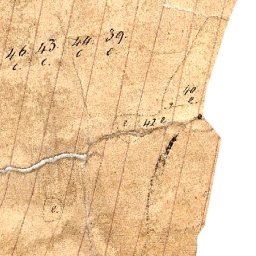 46. 43. 44. 39.
c. c. c c
40
e.
e 42 e
e.